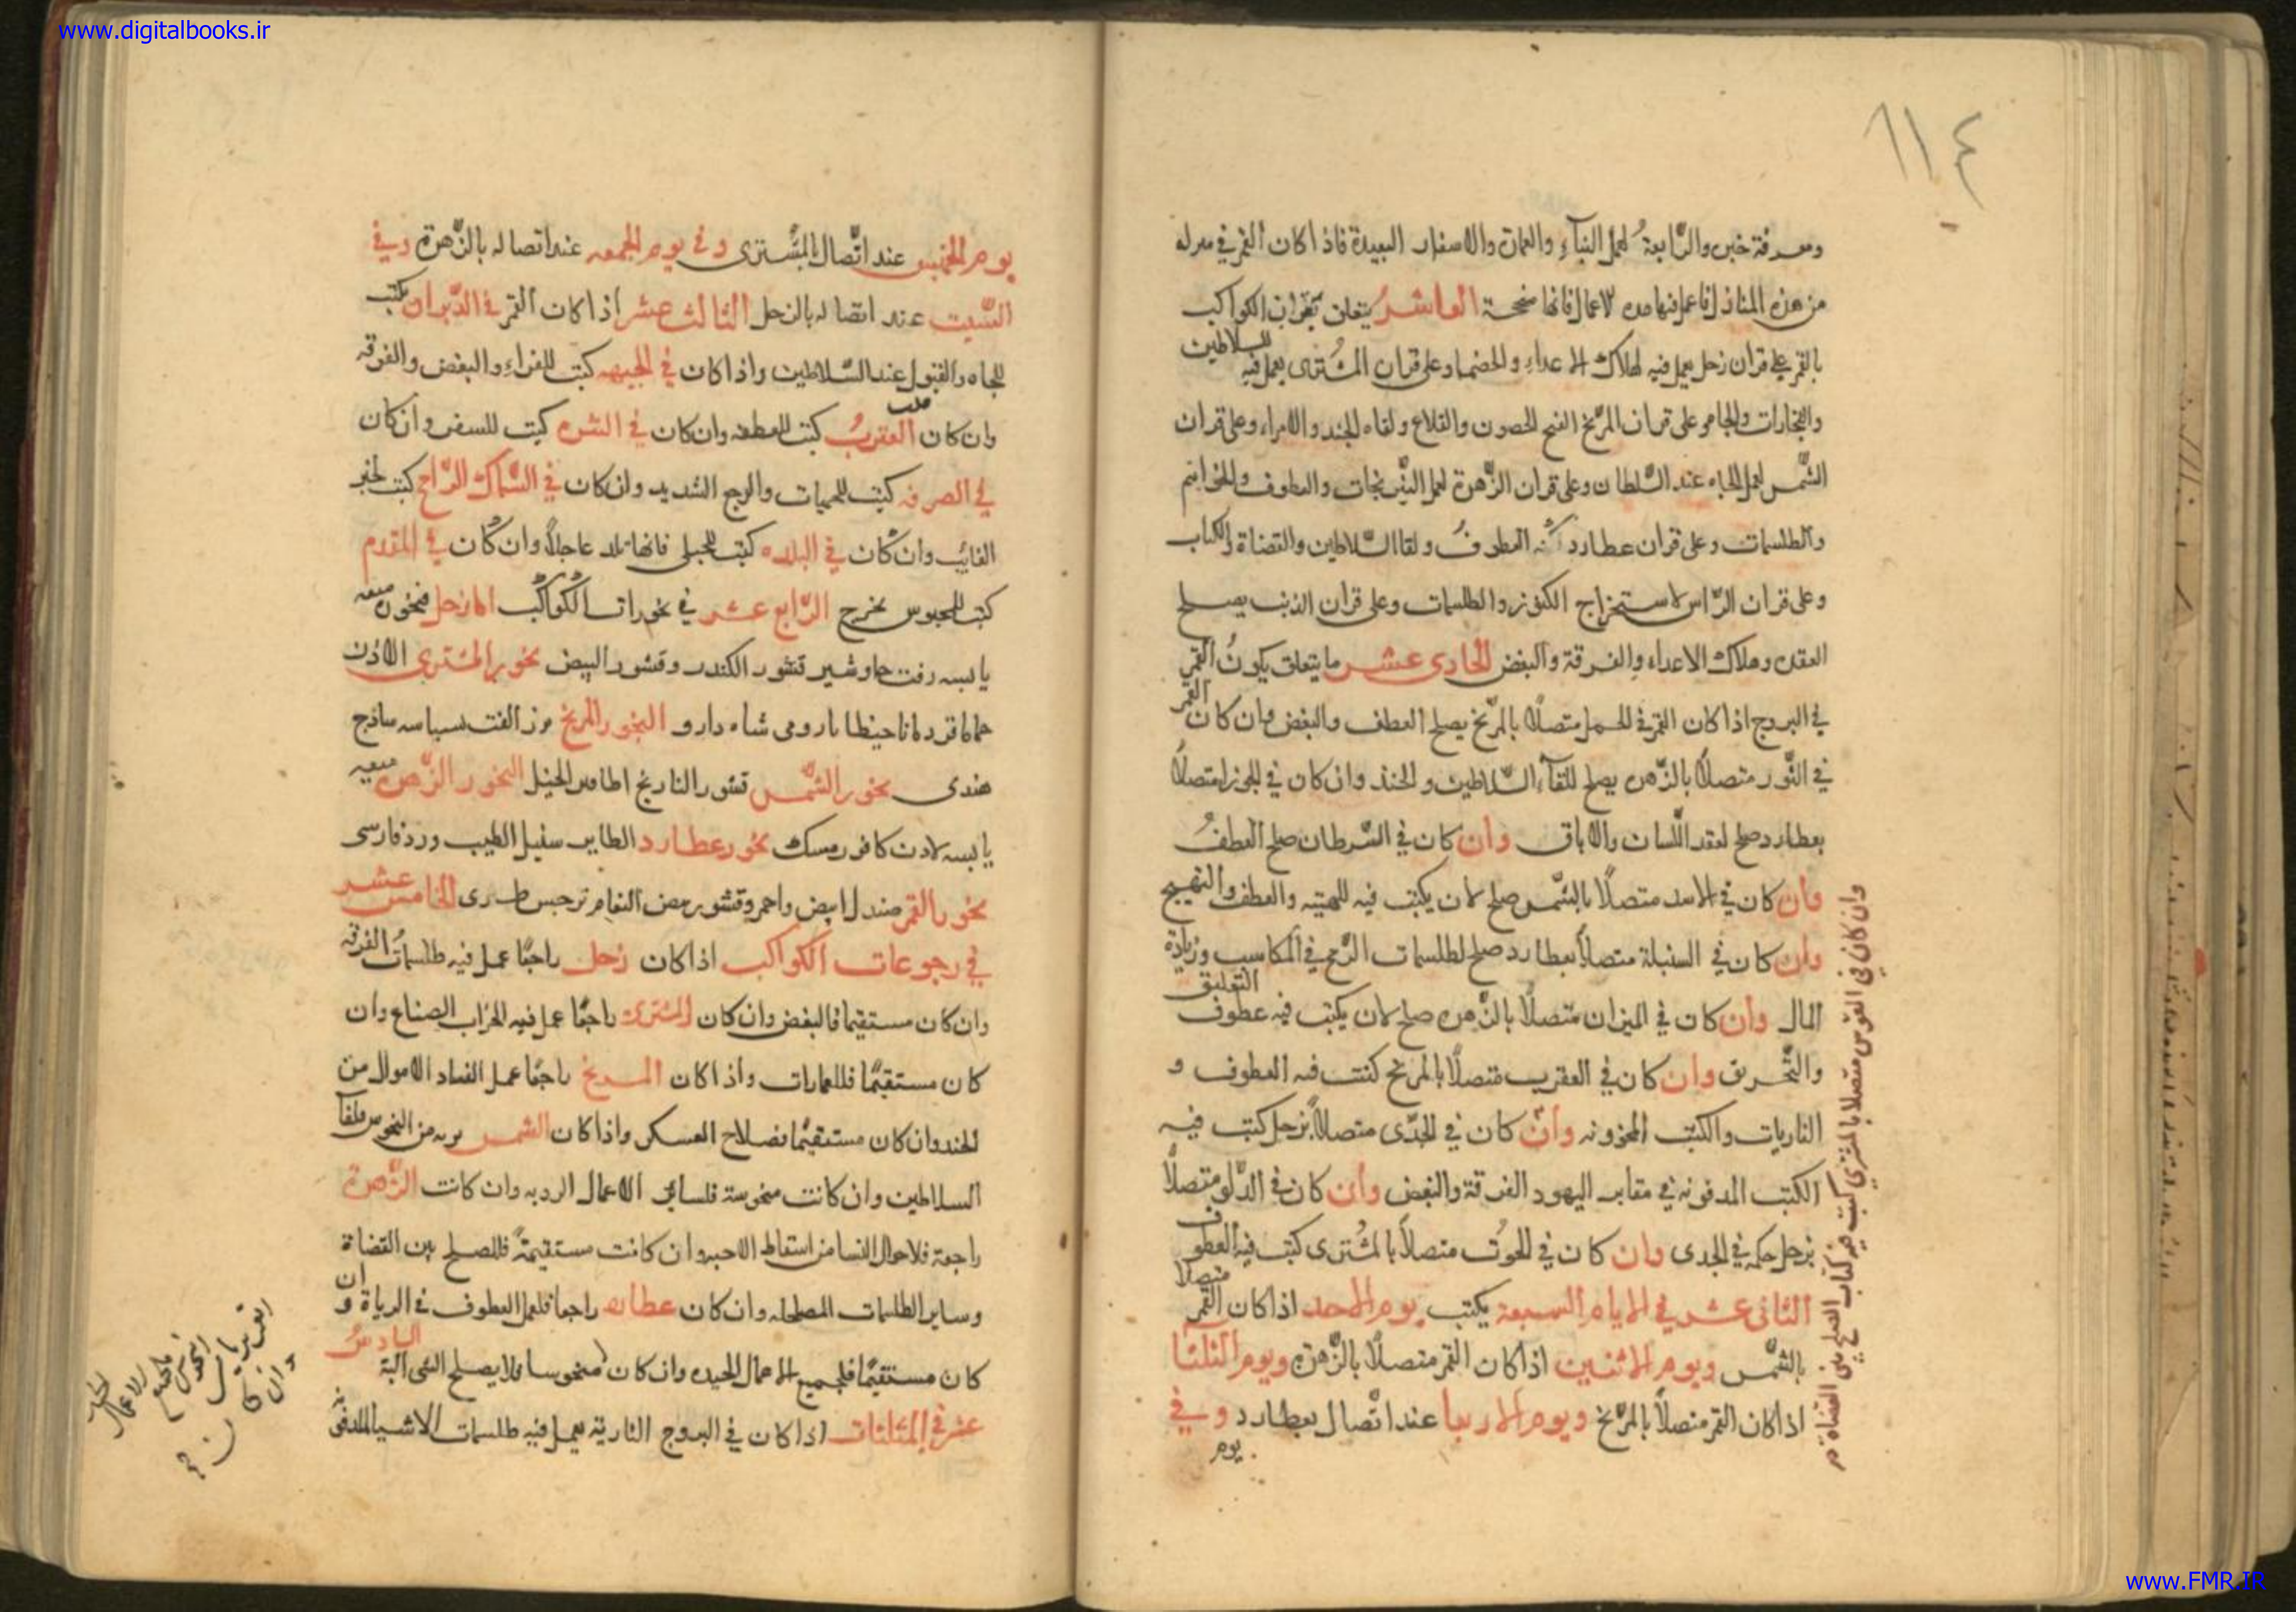 www.digitalbooks.ir
١١٤
ومعرفة خبر والرابعة لعمل البناء والعمارة والاسفار البعيدة فاذا كان القمر في منزله
من هذه المنازل فاعمل فيها هذه الاعمال فانها صحيحة العاشر يتعلق بقران الكواكب
بالقمر على قران زحل يعمل فيه لهلاك الاعداء والخصما وعلى قران المشترى يعمل فيه للسلاطين
والتجارات والجاه وعلى قران المريخ الفتح الحصون والقلاع ولقاء الجند والامراء وعلى قران
الشمس لعمل الجاه عند السلطان وعلى قران الزهرة لعمل النيرنجات والعطوف والخواتيم
والطلسمات وعلى قران عطارد العطوف ولقا السلاطين والقضاة والكتاب
وعلى قران الراس لاستخراج الكنوز والطلسمات وعلى قران الذنب يصلح
العقد وهلاك الاعداء والفرقة والبغض الحادى عشر ما يتعلق بكون القمر
في البروج اذا كان القمر في الحمل متصلاً بالمريخ يصلح العطف والبغض وان كان القمر
في الثور متصلاً بالزهره يصلح للقآء السلاطين والجند وان كان في الجوزا متصلاً
بعطارد صلح لعقد اللسان والاباق وان كان في السرطان صلح العطف
وان كان في الاسد متصلاً بالشمس صلح لان يكتب فيه للهيبة والعطف والتهييج
وان كان في السنبلة متصلاً بعطارد صلح لطلسمات الربح في المكاسب وزيادة
المال وان كان في الميزان متصلاً بالزهره صلح لان يكتب فيه عطوف التعليق
والتحريق وان كان في العقرب متصلاً بالمريخ كتبت فيه العطوف و
الناريات والكتب المحزونه وان كان في الجدى متصلاً بزحل كتب فيه
الكتب المدفونه في مقابر اليهود الفرقة والبغض وان كان في الدلو متصلاً
بزحل حكمه في الجدى وان كان في الحوت متصلاً بالمشترى كتب فيه العطوف
الثانى عشر في الايام السبعة يكتب يوم الاحد اذا كان القمر متصلا
بالشمس ويوم الاثنين اذا كان القمر متصلاً بالزهرة ويوم الثلثا
اذا كان القمر متصلاً بالمريخ ويوم الاربعا عند اتصال بعطارد وفي
يوم
وان كان في القوس متصلا بالمشترى كتبت فيه كتاب الصلح بين القضاة
يوم الخميس عند اتصال المشترى وفي يوم الجمعه عند اتصاله بالزهرة وفي
السبت عند اتصاله بالزحل الثالث عشر اذا كان القمر في الدبران يكتب
للجاه والقبول عند السلاطين واذا كان في الجبهه كتبت للفراء والبغض والفرقه
وان كان قلب العقرب كتبت للعطف وان كان في النثره كتبت للسفر وان كان
في الصرفه كتبت للحميات والوجع الشديد وان كان في السماك الرامح كتبت لخبر
الغائب وان كان في البلده كتبت للحبلى فانها تلد عاجلاً وان كان في المقدم
كتبت للمحبوس يخرج الرابع عشر في بخورات الكواكب اما زحل فبخوره ميعه
يابسه زفت جاوشير قشور الكندر وقشور البيض بخور المشترى اللادن
حماما قردمانا حيطانا رومى شاه دارو البخور المريخ بسباسه ساذج
هندى بخور الشمس قشور النارنج اظافر الخيل البخور الزهره ميعه
يابسه لادن كافور مسك بخور عطارد سنبل الطيب ورد فارسى
بخور القمر صندل ابيض واحمر وقشور بيض النعام نرجس طرى الخامس عشر
في رجوعات الكواكب اذا كان زحل راجعًا عمل فيه طلسمات الفرقه
وان كان مستقيما فالبغض وان كان المشترى راجعًا عمل فيه الخراب الصناع وان
كان مستقيمًا فللعمارات واذا كان المريخ راجعًا عمل الفساد الاموال من
الجند وان كان مستقيمًا فصلاح العسكر واذا كان الشمس من النحوس فلقآ
السلاطين وان كانت منحوسة فلساير الاعمال الرديه وان كانت الزهرة
راجعة فلاحوال النسا من اسقاط وان كانت مستقيمة فالصلح بين القضاة
وساير الطلسمات المصلحه وان كان عطارد راجعا فلعمل العطوف في وان
كان مستقيمًا فلجميع الاعمال الجيده وان كان منحوسا فلا يصلح الشى البتة السادس
عشر في المثلثات اذا كان في البروج النارية يعمل فيه طلسمات الاشيا المدفونه
www.FMR.IR